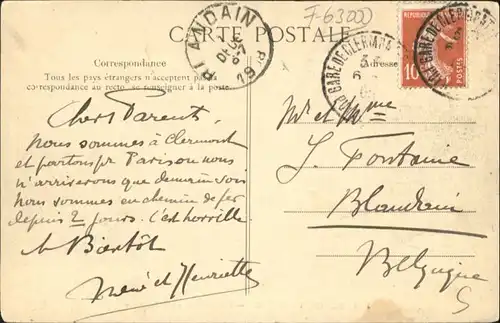 F-63000
CARTE POSTALE
Correspondance
Tous les pays étrangers n'acceptent pas la
correspondance au recto, se renseigner à la poste.
Adresse
BLANDAIN
GARE DE CLERMONT
10
POSTES
Chers Parents
Nous sommes à Clermont
et partons pr Paris où nous
n'arriverons que demain soir
Nous sommes en chemin de fer
depuis 2 jours. C'est horrible
à Bientôt
René et Henriette
Mr et Mme
J. Fontaine
Blandain
Belgique